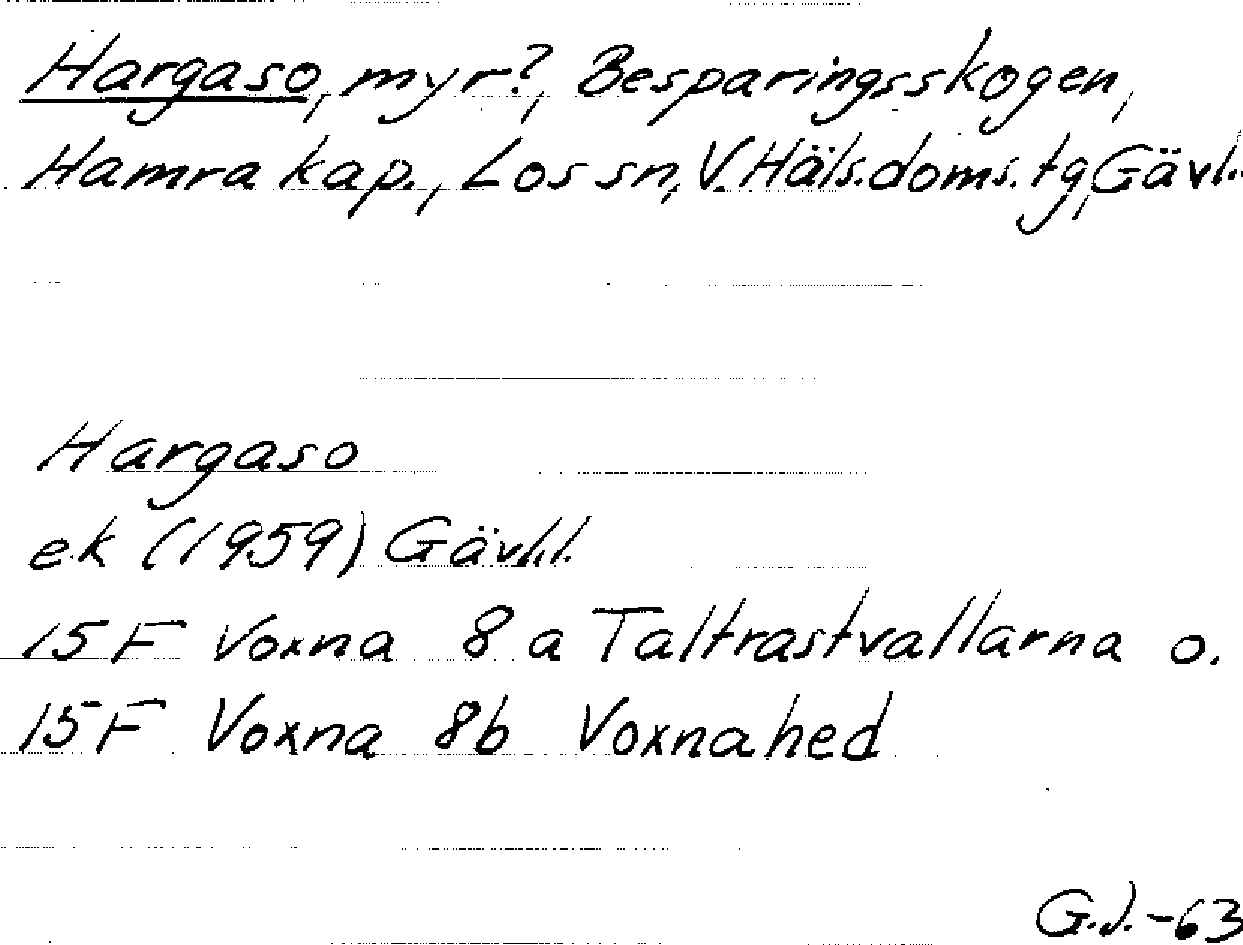 Hargaso, myr?, Besparingsskogen,
Hamra kap., Los sn, V. Häls. doms. tg, Gävl.
Hargaso
ek (1959) Gävl.l.
15 F Voxna 8 a Taltrastvallarna o.
15 F Voxna 8b Voxnahed
G.J. -63